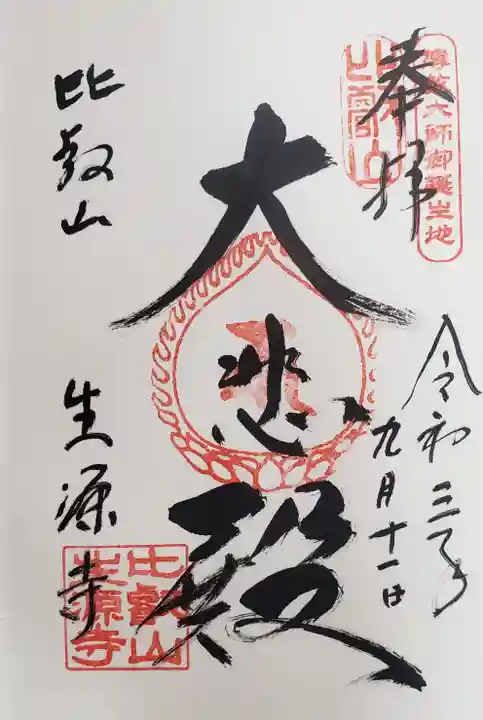 伝教大師御誕生地
比叡山
奉拝
令和三年
九月十一日
大悲殿
比叡山 生源寺
比叡山
生源寺